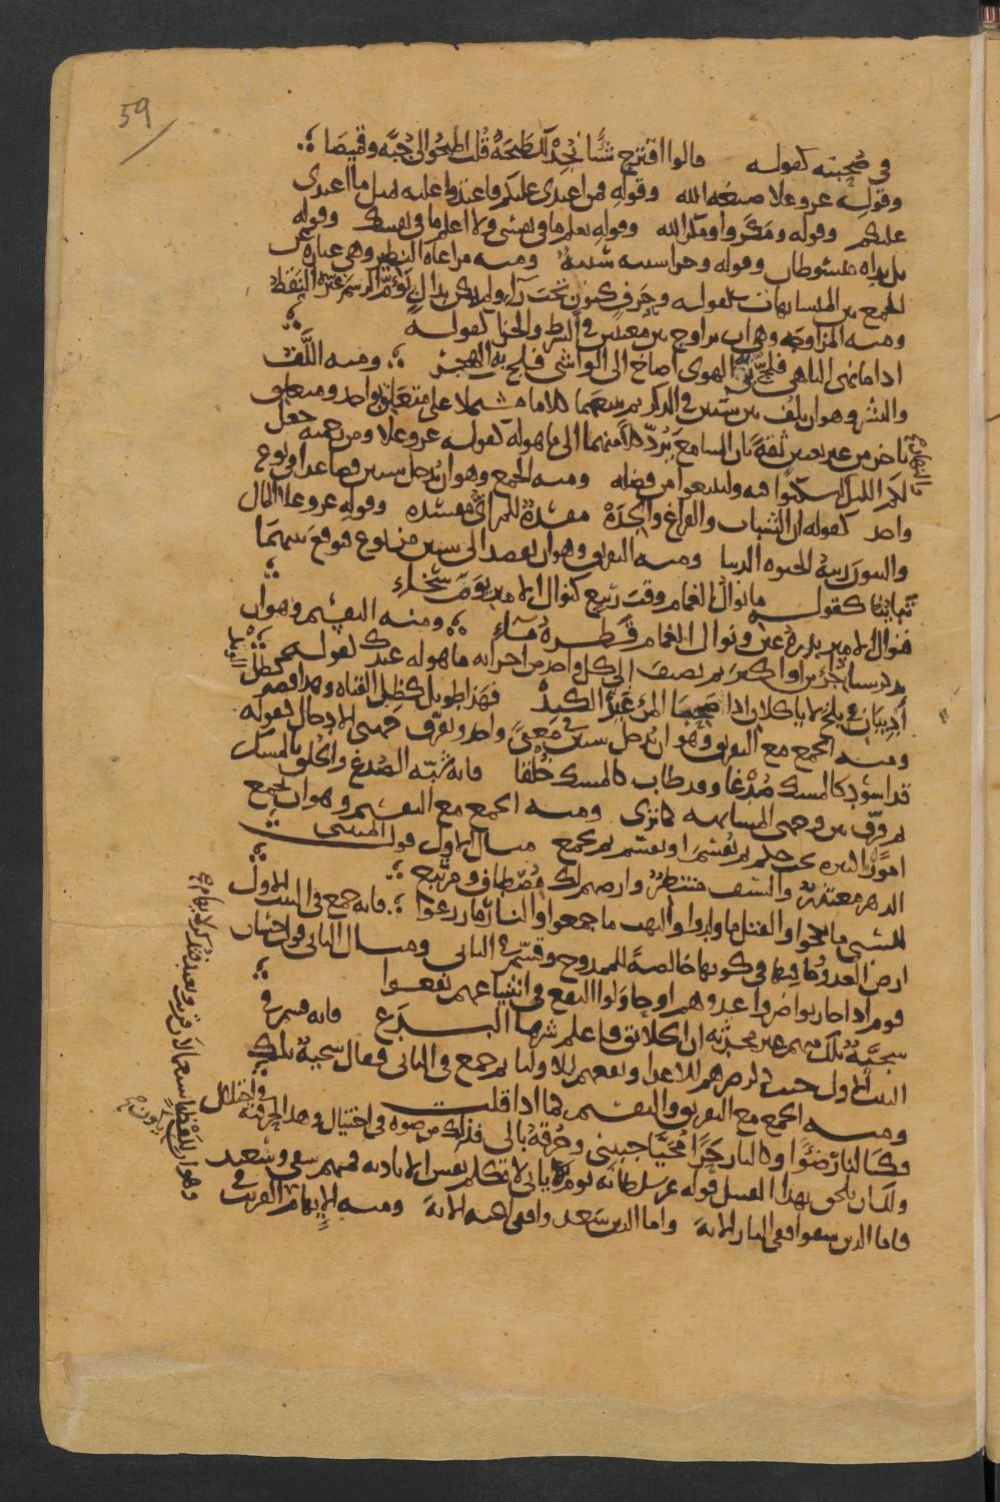 59
في صحبته كقوله قالوا اقترح شيًا نُجِدْ لك طبخَهُ قُلت اطبخُوا لي جُبَّه وقميصَا
وقوله عز وعلا صبغه الله وقوله فمن اعتدى عليكم فاعتدوا عليه بمثل ما اعتدى
عليكم وقوله ومَكَروا ومكر الله وقوله تعلم ما في نفسي ولا اعلم ما في نفسك وقوله
بل يداه مبسوطتان وقوله وجزا سيئه سَيئةٌ ومنه مراعاة النظير وهي عبارة عن
الجمع بين المتشابهات كقوله وحَرفٍ كنونٍ تحت رَآءٍ ولم يكن بدالٍ يَؤمّ الرسمَ غيّره النَقطُ
ومنه المزاوجه وهي ان يزاوج بين معنيين في الشرط والجزا كقوله
اذا ما نهى الناهي فلجّ بي الهوى اصاخ الى الواشي فلج به الهجر ومنه اللَّفّ
والنشر وهو ان يلُف بين شيئين في الذكر ثم يتبعهما كلاما مشتملا على متعلق بواحد ومتعلق
باخر من غير تعيين ثقةً بان السامعَ يَردّ كلًّا منهما الى ما هو له كقوله عز وعلا ومن رحمته جعل
لكم الليل لتسكنوا فيه ولتبتغوا من فضله ومنه الجمع وهو ان تدخل شيئين فصاعدا في نوع
والنهار صح
واحد كقوله ان الشباب والفراغ والجِدَهْ مفسدةٌ للمرء أيُّ مفسده وقوله عز وعلا المال
والبنون زينةُ الحيوه الدنيا ومنه التفريق وهو ان تقصد الى شيئين من نوع فتوقع بينهمَا
تباينًا كقوله ما نوالُ الغمام وقت ربيع كنوال الامير يومَ سَخَاءِ
فنوال الامير بدرة عين ونوال الغمام قطرة مآءِ ومنه التقسيم وهو ان
تذكر شيئا ذا جزئين او اكثر ثم تضيفَ الى كل واحد من اجزائه ما هو له عندك كقوله
أديبان في بلخ لا ياكلان اذا صحبا المرء غيرَ الكَبِدْ فهذا طويل كظل القناه وهذا قصير كظل الوتد
ومنه الجمع مع التفريق وهو ان تدخل شيئين في معنًى واحد وتفرّق جهتي الادخال كقوله
قد اسْودَّ كالمسك صُدْغا وقد طاب كالمسك خُلقا فانه شبّه الصُدغ والخُلق بالمسك
ثم فرّق بين وجهي المشابهه كما ترى ومنه الجمع مع التقسيم وهو ان تجمع
امورًا كثيره تحت حكم ثم تقسّمَ او تقسّم ثم تجمع مثال الاول قول المتنبي
الدهر معتذرٌ والسيف منتظرٌ وارضهم لك مُصْطاف ومرتبع
للسبي ما نكحوا والقتل ما ولدوا والنهب ما جمعوا والنار ما زرعوا فانه جمع في البيت الاول
ارض العدو وما فيها في كونها خالصةً للممدوح وقسّم في الثاني ومثال الثاني قول حسّان
قوم اذا حاربوا ضروا عدوهم او حاولوا النفع في اشياعهم نفعوا
سجيَّةٌ تلك منهم غير مُحدَثه ان الخلائق فاعلم شرها البدَع فانه قسم في
البيت الاول حيث ذكر ضرهم للاعدا ونفعهم للاوليا ثم جمع في الثاني فقال سجيةٌ تلك
ومنه الجمع مع التفريق والتقسيم كما اذا قلت
فكالنار ضَوًا وكالنار حَرًّا مُحَيَّا حبيبي وحُرقةُ بالي فذلك من ضوه في اختيال وهذا لحرقته في اختلال
ولك ان تلحق بهذا القبيل قوله عز سلطانه يوم يأتي لا تكلم نفس الا باذنه فمنهم شقي وسَعيد
فاما الذين شقوا ففي النار الايهَ واما الذين سُعدوا ففي الجنه الايهَ ومنه الإيهام
وهو ان للفظ استعمالان قريب وبعيد فيذكر لايهام